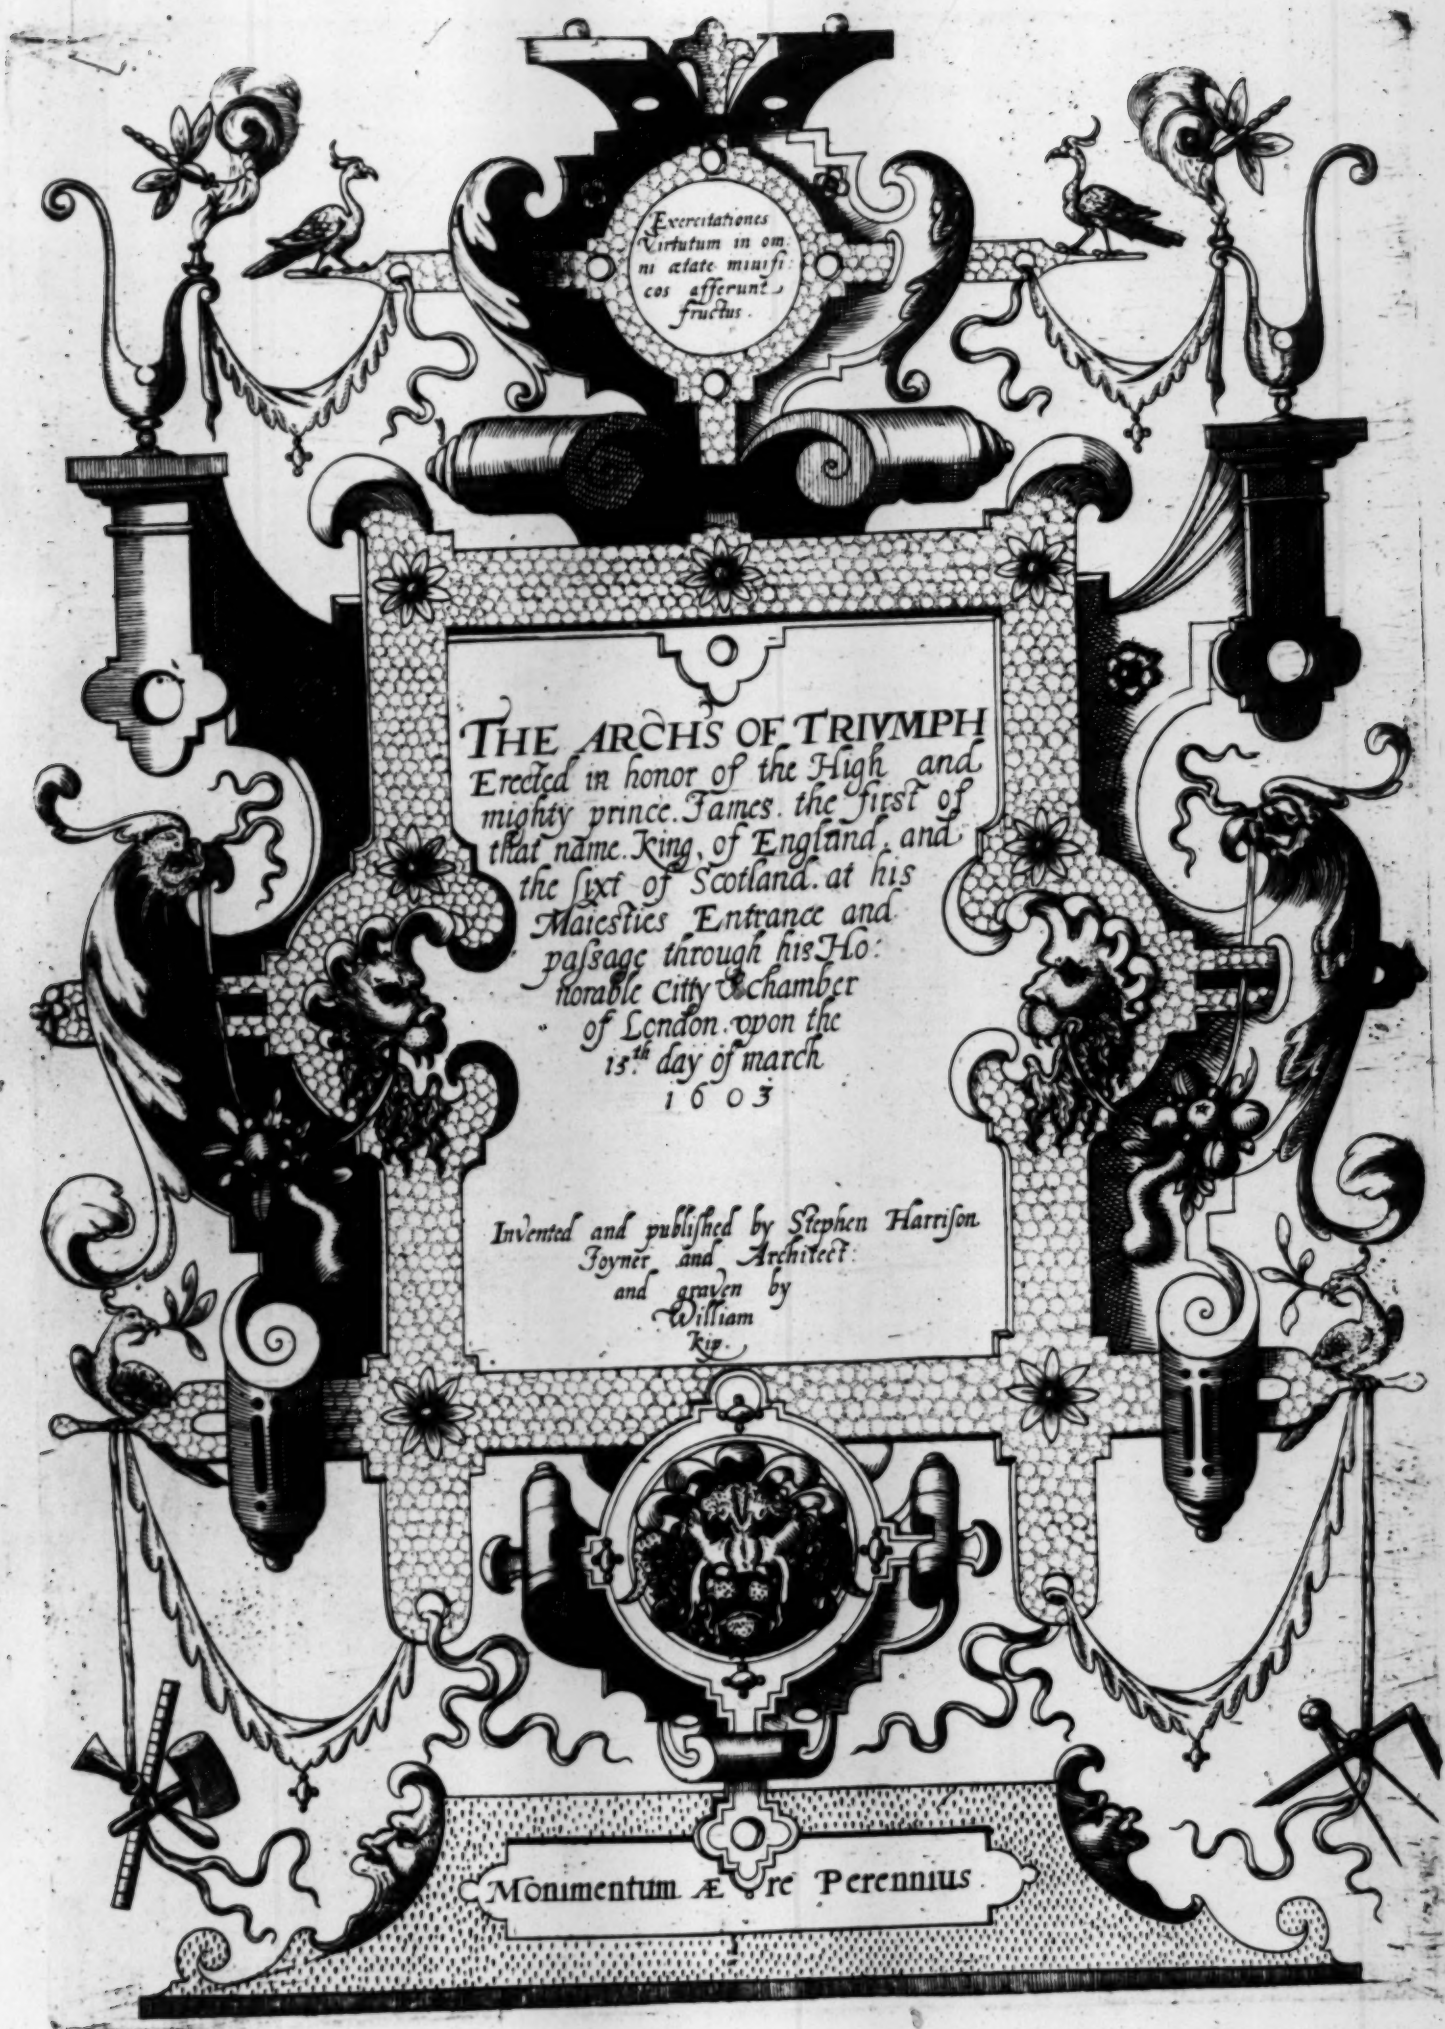 Exercitationes
Virtutum in om:
ni ætate mirifi:
cos afferunt
fructus.
THE ARCHS OF TRIVMPH
Erected in honor of the High and
mighty prince. James. the first of
that name. King, of England. and
the sixt of Scotland. at his
Maiesties Entrance and
passage through his Ho:
norable Citty & chamber
of London. vpon the
15th. day of march
1603
Invented and published by Stephen Harrison
Joyner and Architect:
and graven by
William
Kip.
Monimentum Ære Perennius.
1